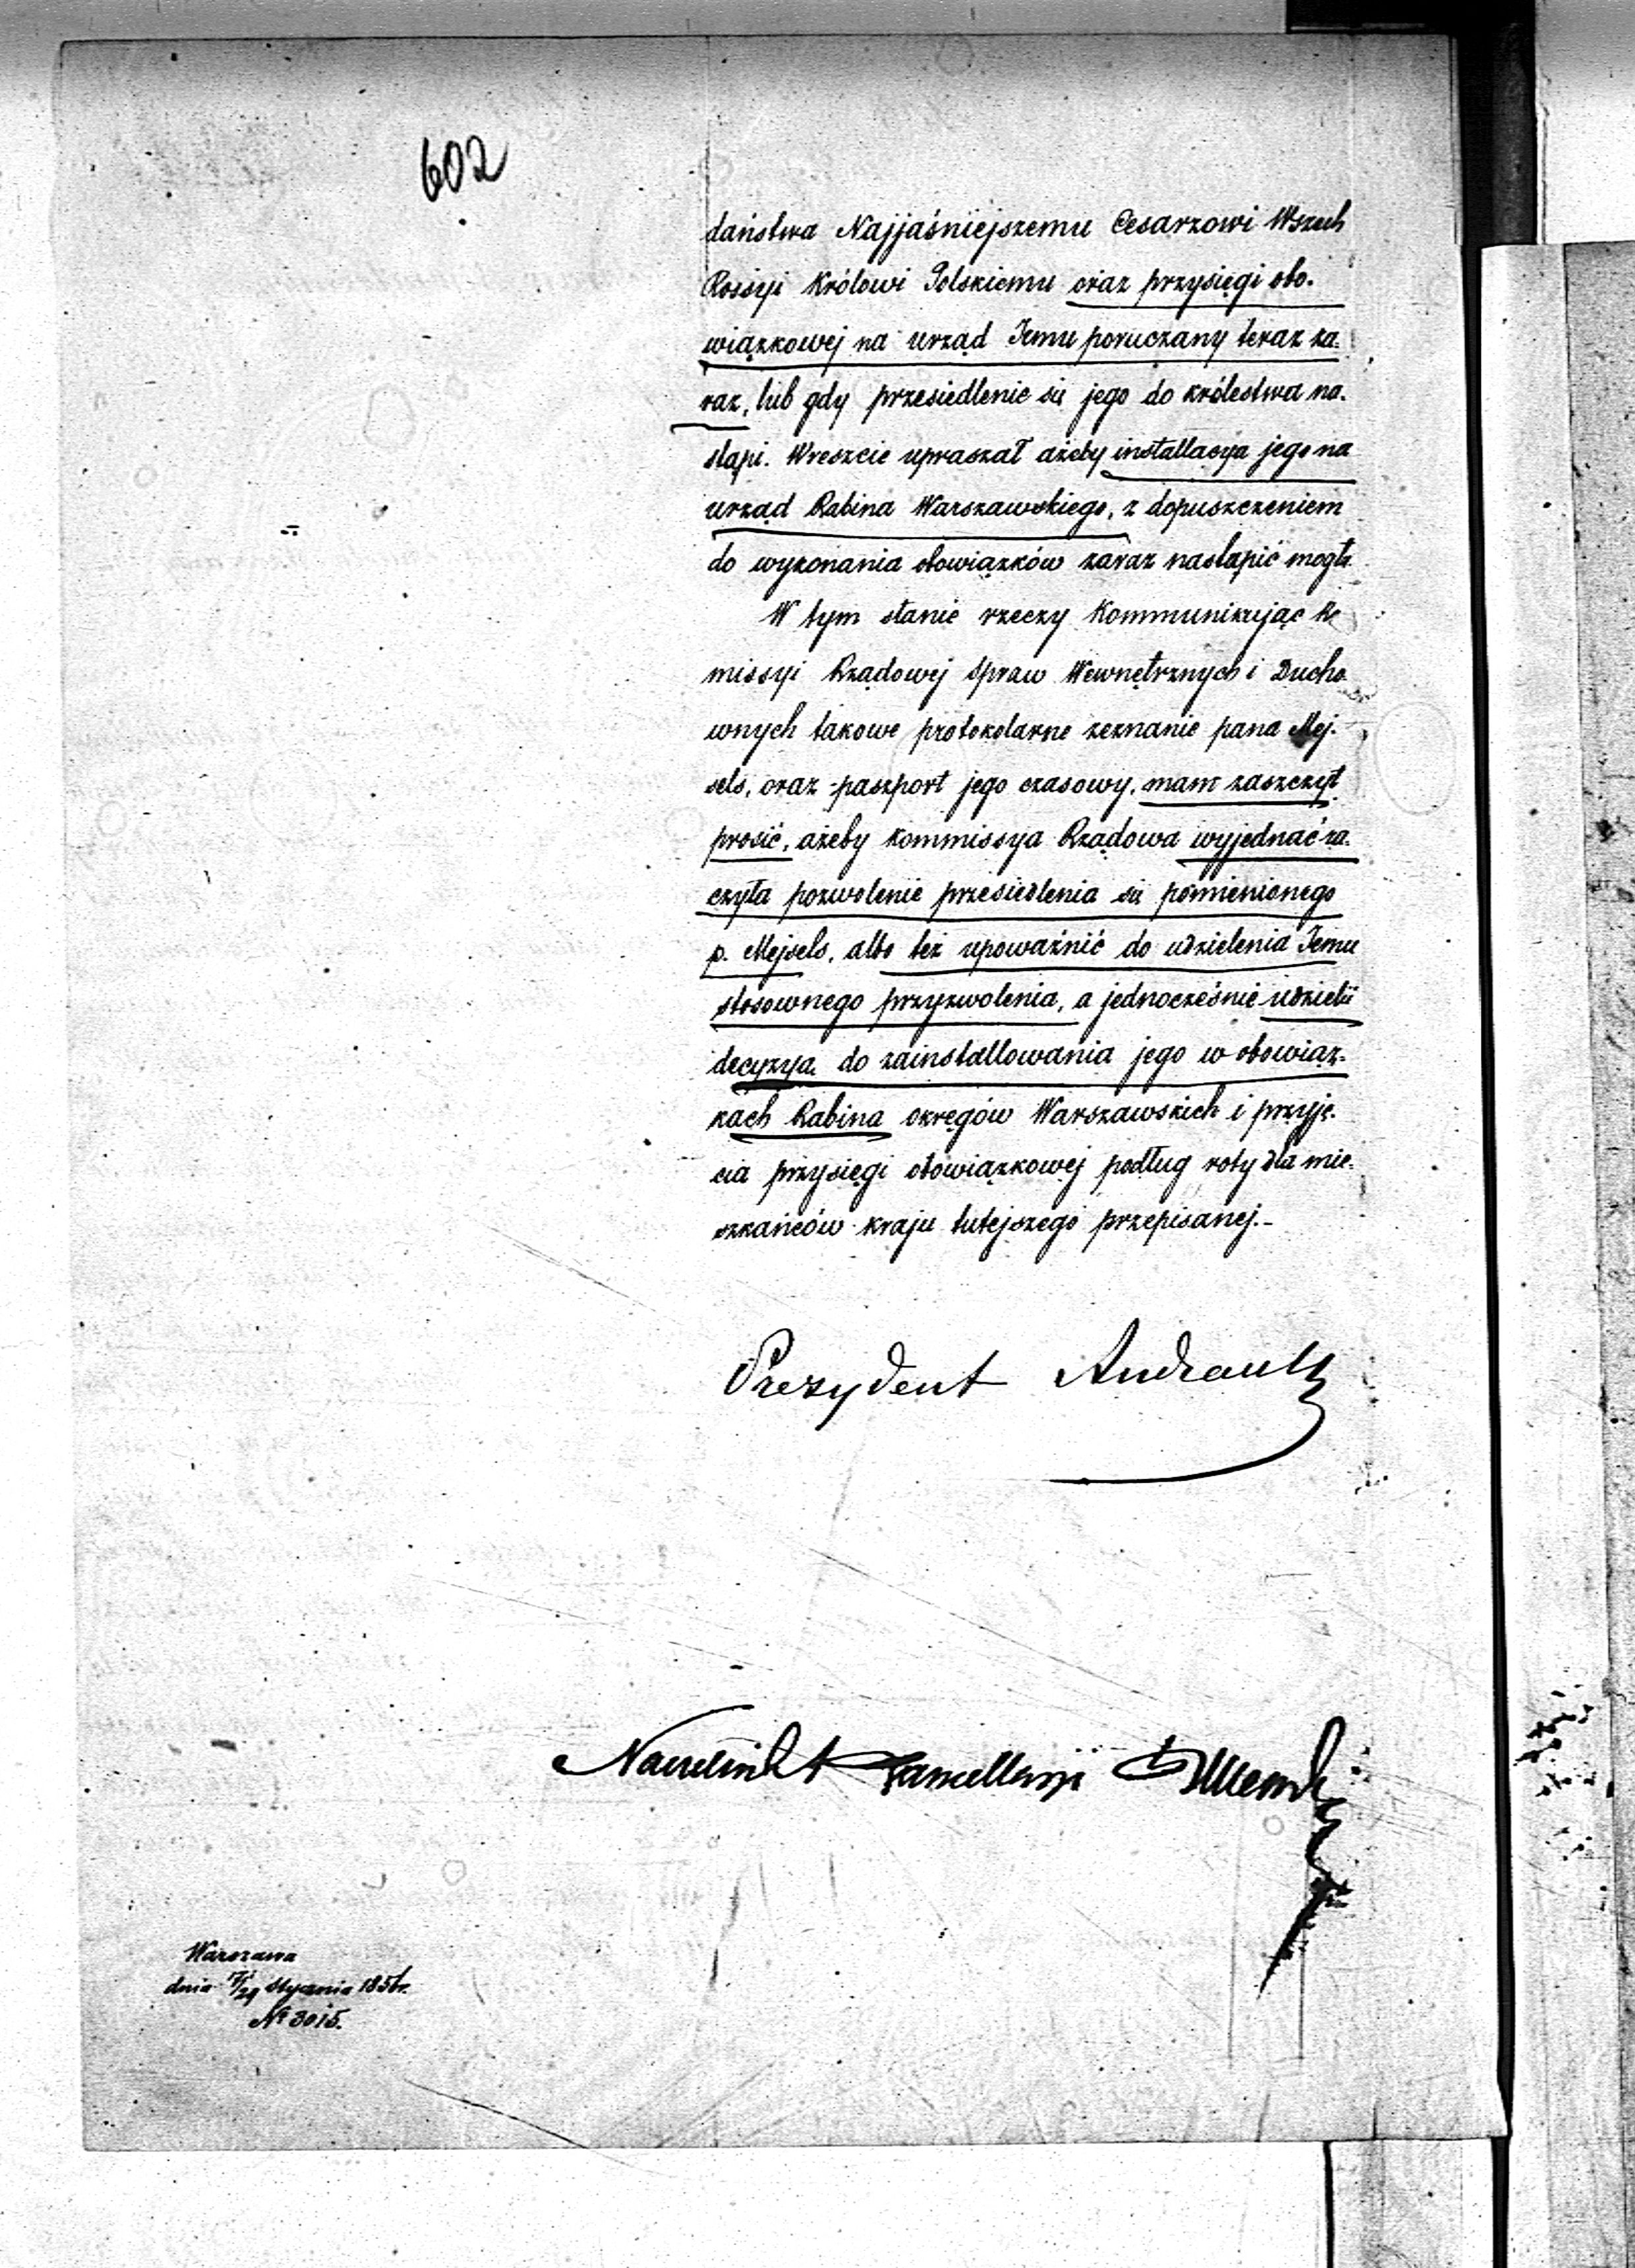 602
daństwa Najjaśniejszemu Cesarzowi Wszech
Rossyi Królowi Polskiemu oraz przysięgi obo-
wiązkowej na urząd Jemu poruczany teraz za-
raz, lub gdy przesiedlenie się jego do królestwa na-
stąpi. Wreszcie upraszał ażeby installacya jego na
urząd Rabina Warszawskiego, z dopuszczeniem
do wykonania obowiązków zaraz nastąpić mogła
W tym stanie rzeczy Kommunikując Ko
missyi Rządowej Spraw Wewnętrznych i Ducho
wnych takowe protokolarne zeznanie pana Mej-
sels, oraz paszport jego czasowy, mam zaszczyt
prosić, ażeby Kommissya Rządowa wyjednać ra-
czyła pozwolenie przesiedlenia się pomienionego
p. Mejsels, albo też upoważnić do udzielenia Jemu
stosownego przyzwolenia, a jednocześnie udzielić
decyzyą do zainstallowania jego w obowiąz-
kach Rabina okręgów Warszawskich i przyję-
cia przysięgi obowiązkowej podług roty dla mie-
szkańców kraju tutejszego przepisanej.-
Prezydent Andrault
Naczelnik Kancellaryi
Warszawa
dnia 17/29 Stycznia 1856r.
Nº 3015.